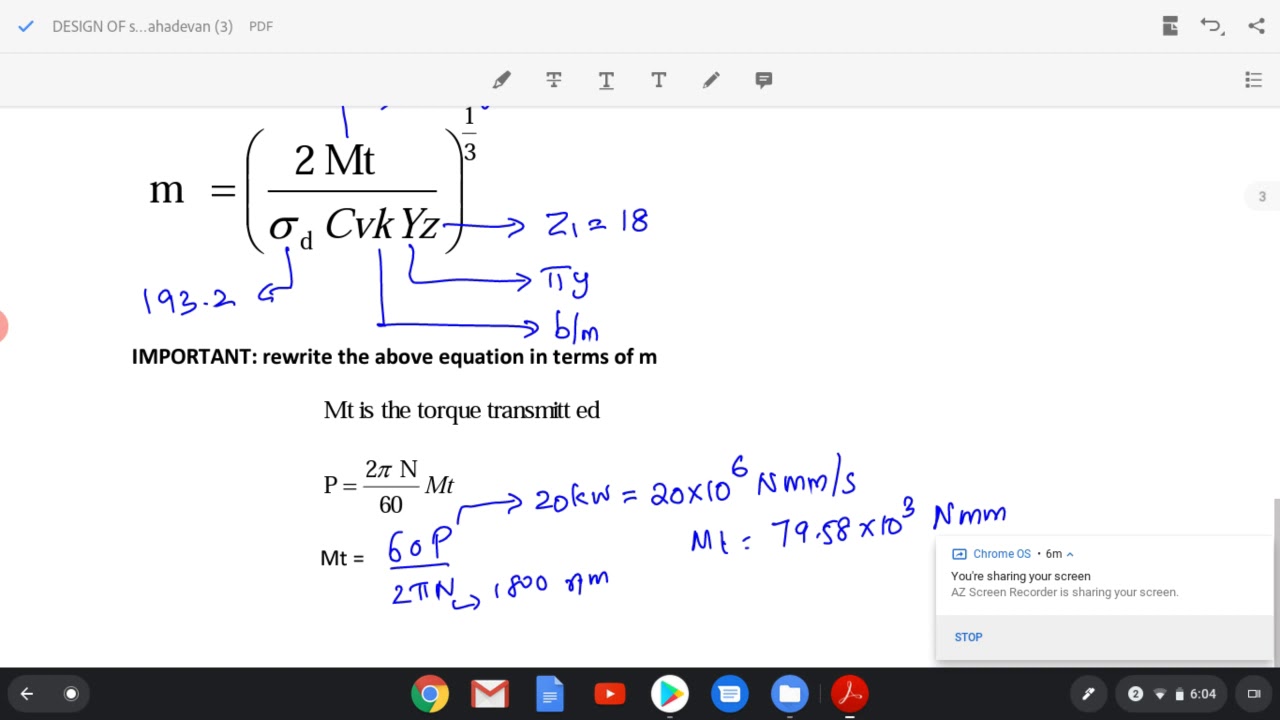 DESIGN OF s...ahadevan (3) PDF
1
3
m = ( 2 Mt / σd Cvk Yz )
3
Z1 = 18
πy
193.2
b/m
IMPORTANT: rewrite the above equation in terms of m
Mt is the torque transmitt ed
P = 2π N / 60 Mt
20kw = 20×10^6 Nmm/s
Mt = 60P / 2πN
Mt = 79.58×10^3 Nmm
1800 rpm
Chrome OS • 6m
You're sharing your screen
AZ Screen Recorder is sharing your screen.
STOP
2 6:04